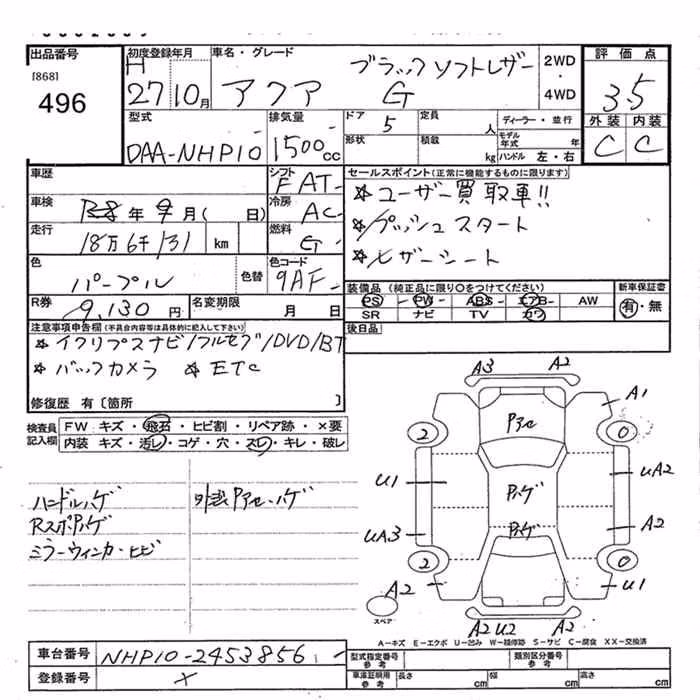 出品番号
[868]
496
初度登録年月
H
27 10月
車名・グレード
アクア
ブラックソフトレザー
G
2WD
・
4WD
評価点
3.5
外装 内装
C C
型式
DAA-NHP10
排気量
1500cc
ドア 5
定員 人
形状
積載 kg
ディーラー・並行
モデル年式 年
ハンドル 左・右
車歴
シフト FAT-
車検 年 9月( 日)
冷房 AC-
走行 18万6千131 km
燃料 G-
色 パープル 色替
色コード 9AF-
R券 9,130円
名変期限 月 日
セールスポイント(正常に機能するものに限ります)
☆ユーザー買取車!!
☆プッシュスタート
☆レザーシート
装備品(純正品に限り○をつけてください)
PS PW ABS エアB AW
SR ナビ TV カワ
新車保証書
有・無
後日品
注意事項申告欄(不具合内容等は具体的に記入して下さい)
☆イクリプスナビ/フルセグ/DVD/BT
☆バックカメラ ☆ETC
修復歴 有〔箇所 〕
検査員
記入欄
FW キズ・飛石・ヒビ割・リペア跡・×要
内装 キズ・汚レ・コゲ・穴・スレ・キレ・破レ
ハンドルハゲ
RスポハゲE
ミラーウィンカーヒビ
外装Pアセ・ハゲ
A3 A2
A1
Pアセ
2 0
U1
Pハゲ
UA2
UA3
Pハゲ
A2
2 0
A2
U1
A2 U2 A2
スペア
A-キズ E-エクボ U-凹み W-補修跡 S-サビ C-腐食 XX-交換済
車台番号 NHP10-2453856
登録番号 ×
型式指定番号
参考
類別区分番号
参考
車庫証明用
参考
長さ cm 幅 cm 高さ cm